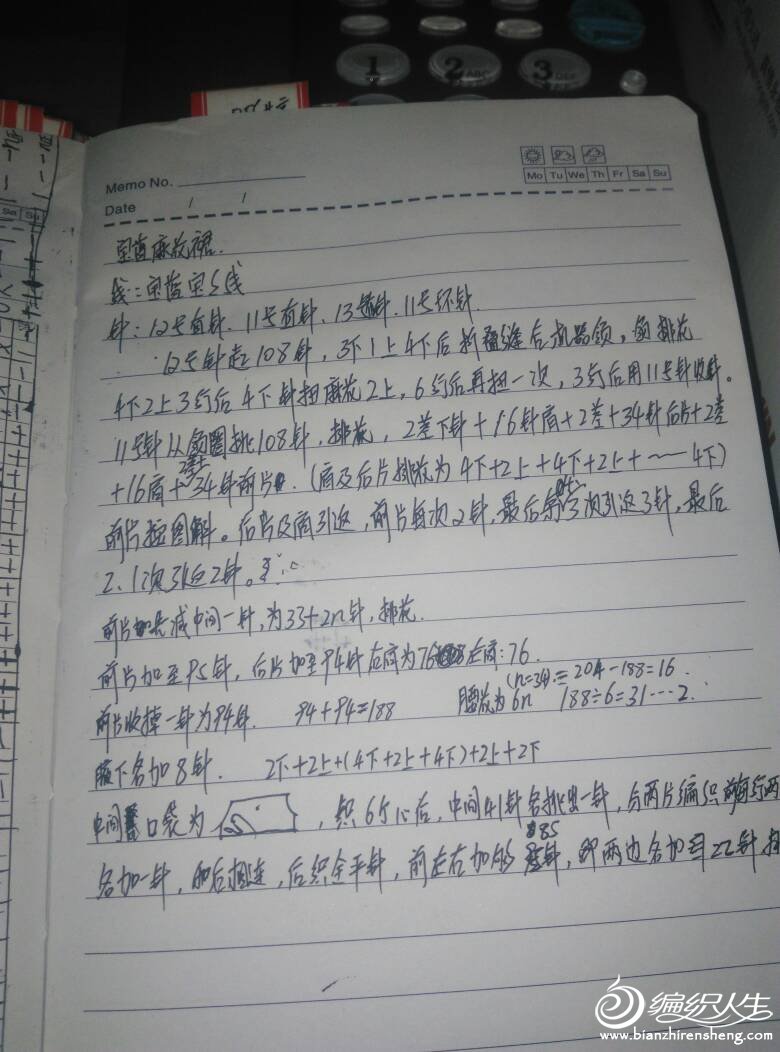 1 2 ABC 3 DEF
Memo No.
Mo Tu We Th Fr Sa Su
Date / /
宝蓝麻花裙.
线:宝蓝宝宝线
针:12号直针、11号直针、13号针、11号环针
12号针起108针,3下1上4下后折叠缝合机器领,领排花
4下2上3行后4下针扭麻花2上,6行后再扭一次,3行后用11号针收针。
11号针从领圈挑108针,排花,2差下针+16针肩+2差+34针后片+2差
+16肩+2差+34针前片.(肩及后片排花为4下+2上+4下+2上+……4下)
前片按图解。后片及肩引返,前片每次2针,最后第3次引返3针,最后
2、1次引返2针。
前片先减中间一针,为33+2n针,排花.
前片加至95针,后片加至94针右肩为76 左肩:76.
(n=34) = 204-188=16
前片收掉一针为94针. 94+94=188 腰花为6n 188÷6=31…2.
腋下各加8针. 2下+2上+(4下+2上+4下)+2上+2下
中间口袋为 ,织6行心后,中间41针各挑出一针,与两片编织 每行两
85
各加一针,加后相连,后织全平针,前左右加够 针,即两边各加到22针
编织人生
www.bianzhirensheng.com